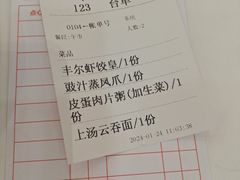 123 台单
0104-账单号
人数:2
菜品
丰尔虾饺皇/1份
豉汁蒸凤爪/1份
皮蛋肉片粥(加生菜)/1
份
上汤云吞面/1份
2024-01-24 11:03:38